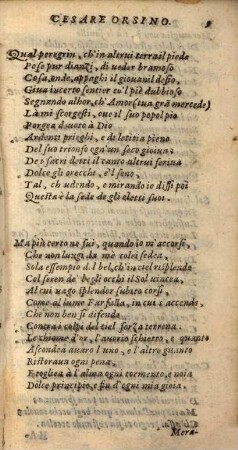 CESARE ORSINO. 9
Qual peregrin, ch'in altrui terra il piede
Pose pur dianzi, di ueder bramoso
Cosa, onde, appaghi il giouanil desio,
Giua incerto sentier co'l piè dubbioso
Segnando alhor, ch'Amor (sua grã mercede)
Là mi scorgesti, oue il suo popol pio
Porgea diuoto à Dio
Ardenti prieghi, e di letitia pieno
Del suo trionfo ogn'un seco gioiua:
De' sacri detti il canto altrui feriua
Dolce gli orecchi, e'l seno.
Tal, ch'udendo, e mirando io dissi poi
Questa è la sede de gli eletti suoi.
Ma più certo ne fui, quando io m'accorsi,
Che non lungi da me colei sedea,
Sola essempio del bel, ch'in ciel risplende
Col seren de' begli occhi il Sol uincea,
Al cui uago splendor subito corsi,
Come al lume Farfalla, in cui s'accende,
Che non ben si difende
Contra i colpi del ciel forza terrena.
Le chiome d'or, l'auorio schietto, e quanto
Ascondea auaro l'uno, e l'altro guanto
Ristoraua ogni pena,
E toglica à l'alma ogni tormento, e noia
Dolce principio, e fin d'ogni mia gioia.
Mera-